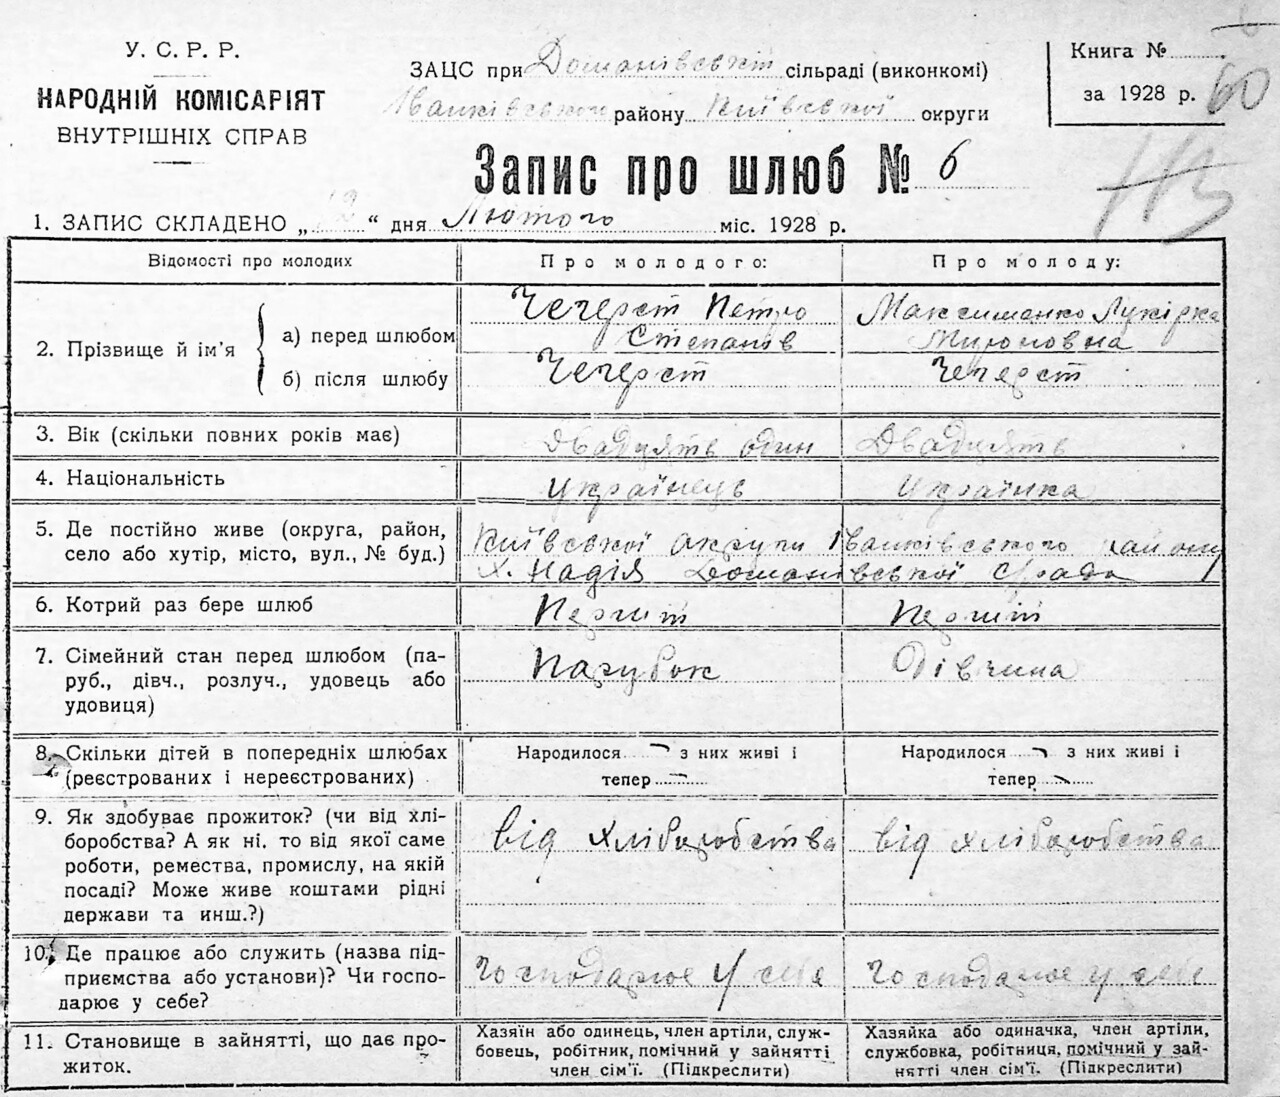 У. С. Р. Р.
НАРОДНІЙ КОМІСАРІЯТ
ВНУТРІШНІХ СПРАВ
ЗАЦС при Доманівськ сільраді (виконкомі)
Іванківського району Київської округи
Книга №
за 1928 р. 60
Запис про шлюб № 6
113
1. ЗАПИС СКЛАДЕНО „12“ дня Лютого міс. 1928 р.
Відомості про молодих
Про молодого:
Про молоду:
2. Прізвище й ім'я
а) перед шлюбом
Чечерст Петро
Степанів
Максименко Лукірка
Мироновна
б) після шлюбу
Чечерст
Чечерст
3. Вік (скільки повних років має)
Двадцять один
Двадцять
4. Національність
Українець
Українка
5. Де постійно живе (округа, район,
село або хутір, місто, вул., № буд.)
Київської округи Іванківського району
х. Надія Доманівської с/ради
6. Котрий раз бере шлюб
Перший
Перший
7. Сімейний стан перед шлюбом (па-
руб., дівч., розлуч., удовець або
удовиця)
Парубок
Дівчина
8. Скільки дітей в попередніх шлюбах
(реєстрованих і нереєстрованих)
Народилося — з них живі і
тепер —
Народилося — з них живі і
тепер —
9. Як здобуває прожиток? (чи від хлі-
боробства? А як ні, то від якої саме
роботи, ремества, промислу, на якій
посаді? Може живе коштами рідні
держави та инш.?)
від хліборобства
від хліборобства
10. Де працює або служить (назва під-
приємства або установи)? Чи госпо-
дарює у себе?
Господарює у себе
Господарює у себе
11. Становище в зайнятті, що дає про-
житок.
Хазяїн або одинець, член артіли, служ-
бовець, робітник, помічний у зайнятті
член сім'ї. (Підкреслити)
Хазяйка або одиначка, член артіли,
службовка, робітниця, помічний у зай-
нятті член сім'ї. (Підкреслити)